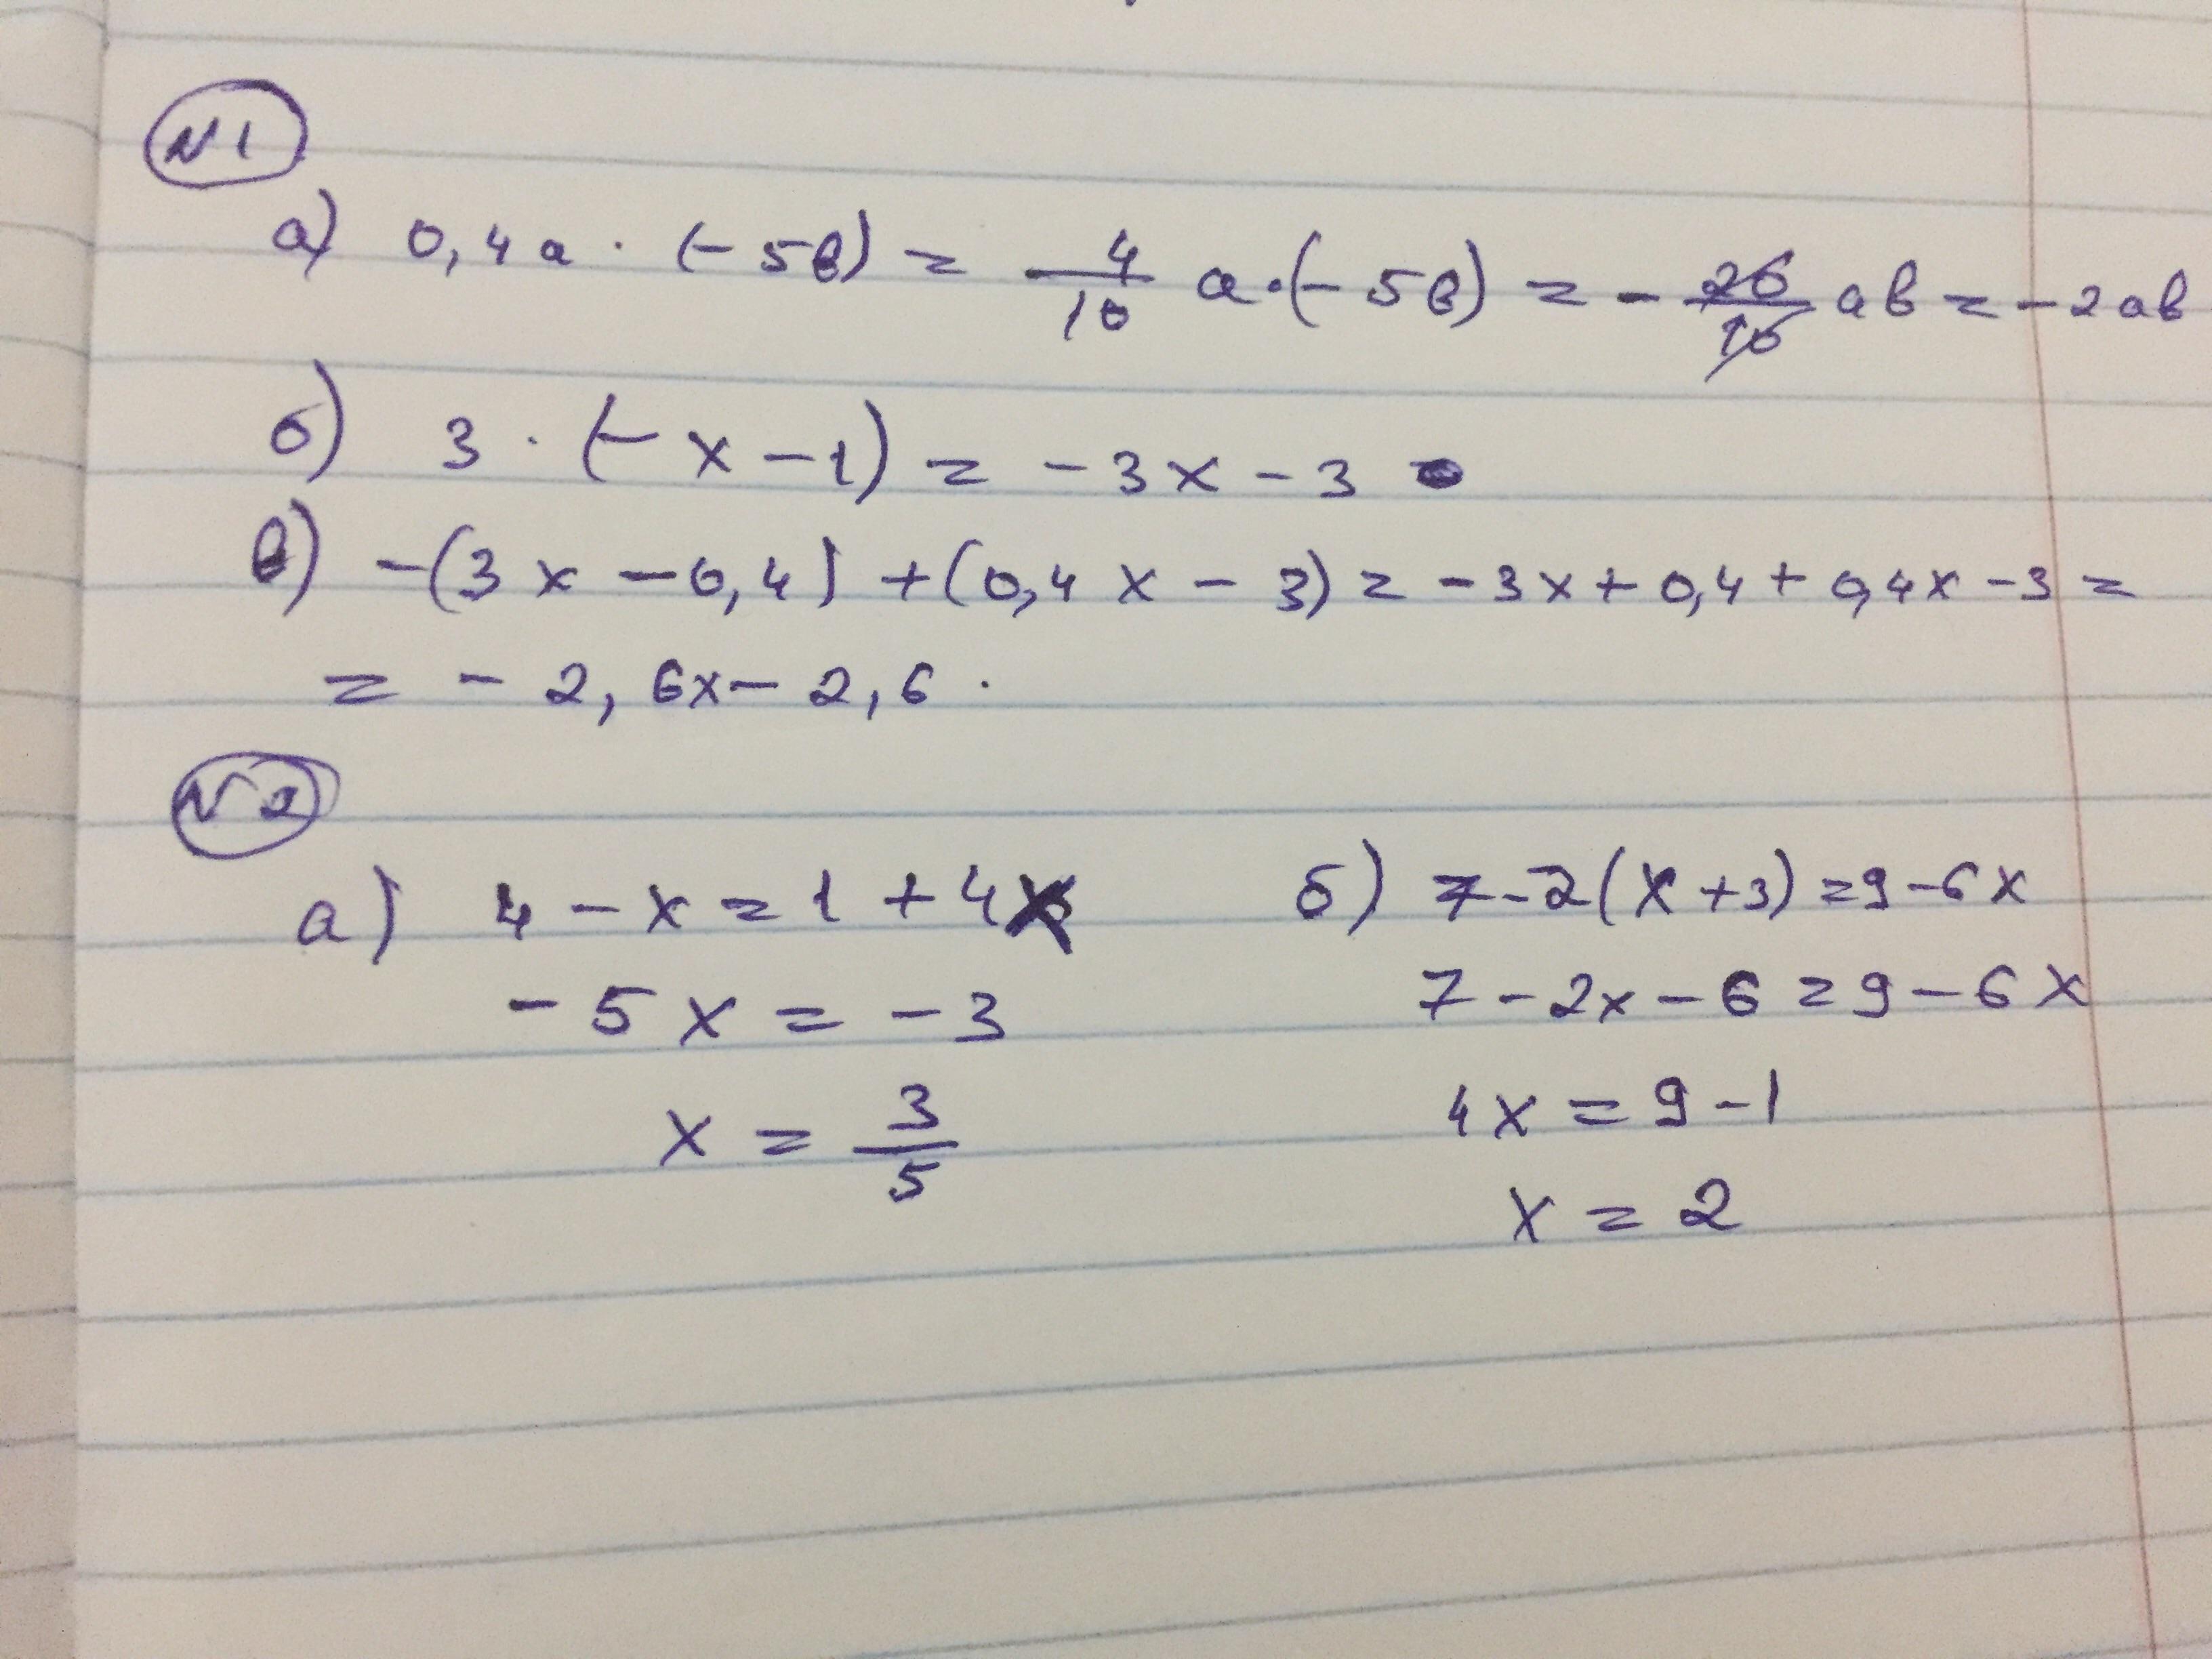 N1
а) 0,4а · (-5в) = 4/10 а·(-5в) = - 20/10 ав = -2ав
б) 3 · (-x-1) = -3x-3
в) -(3x-0,4) + (0,4x-3) = -3x+0,4+0,4x-3 =
= -2,6x-2,6.
N2
а) 4-x=1+4x
-5x=-3
x = 3/5
б) 7-2(x+3)=9-6x
7-2x-6=9-6x
4x=9-1
x=2